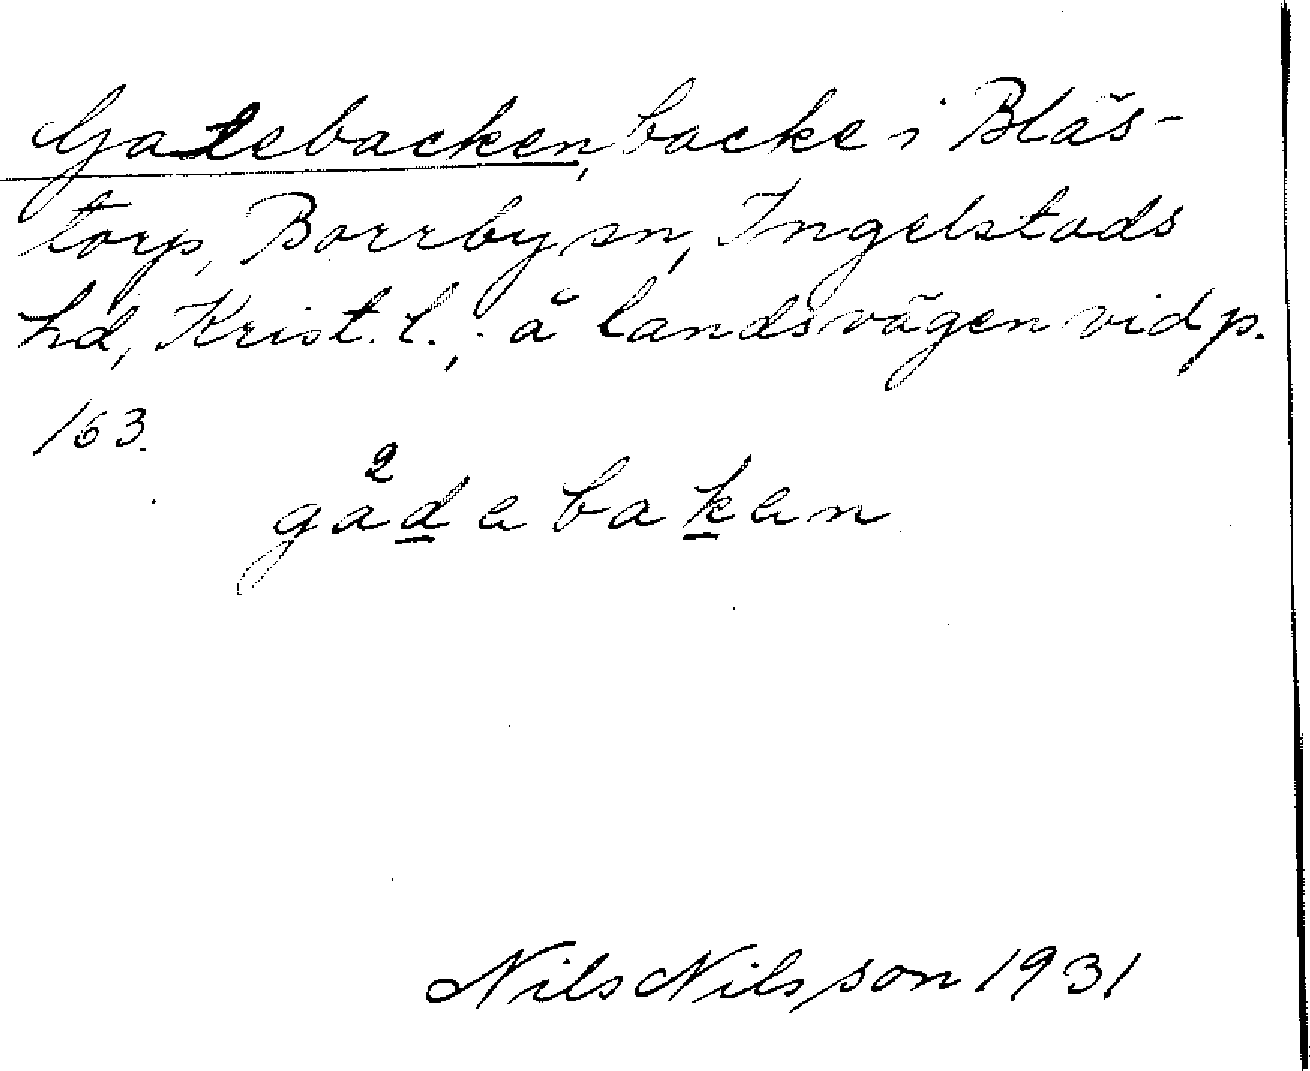 Gatebacken, backe i Bläs-
torp, Borrby sn, Ingelstads
hd, Krist. l.; å landsvägen vid p.
163.
gå²debaken
Nils Nilsson 1931